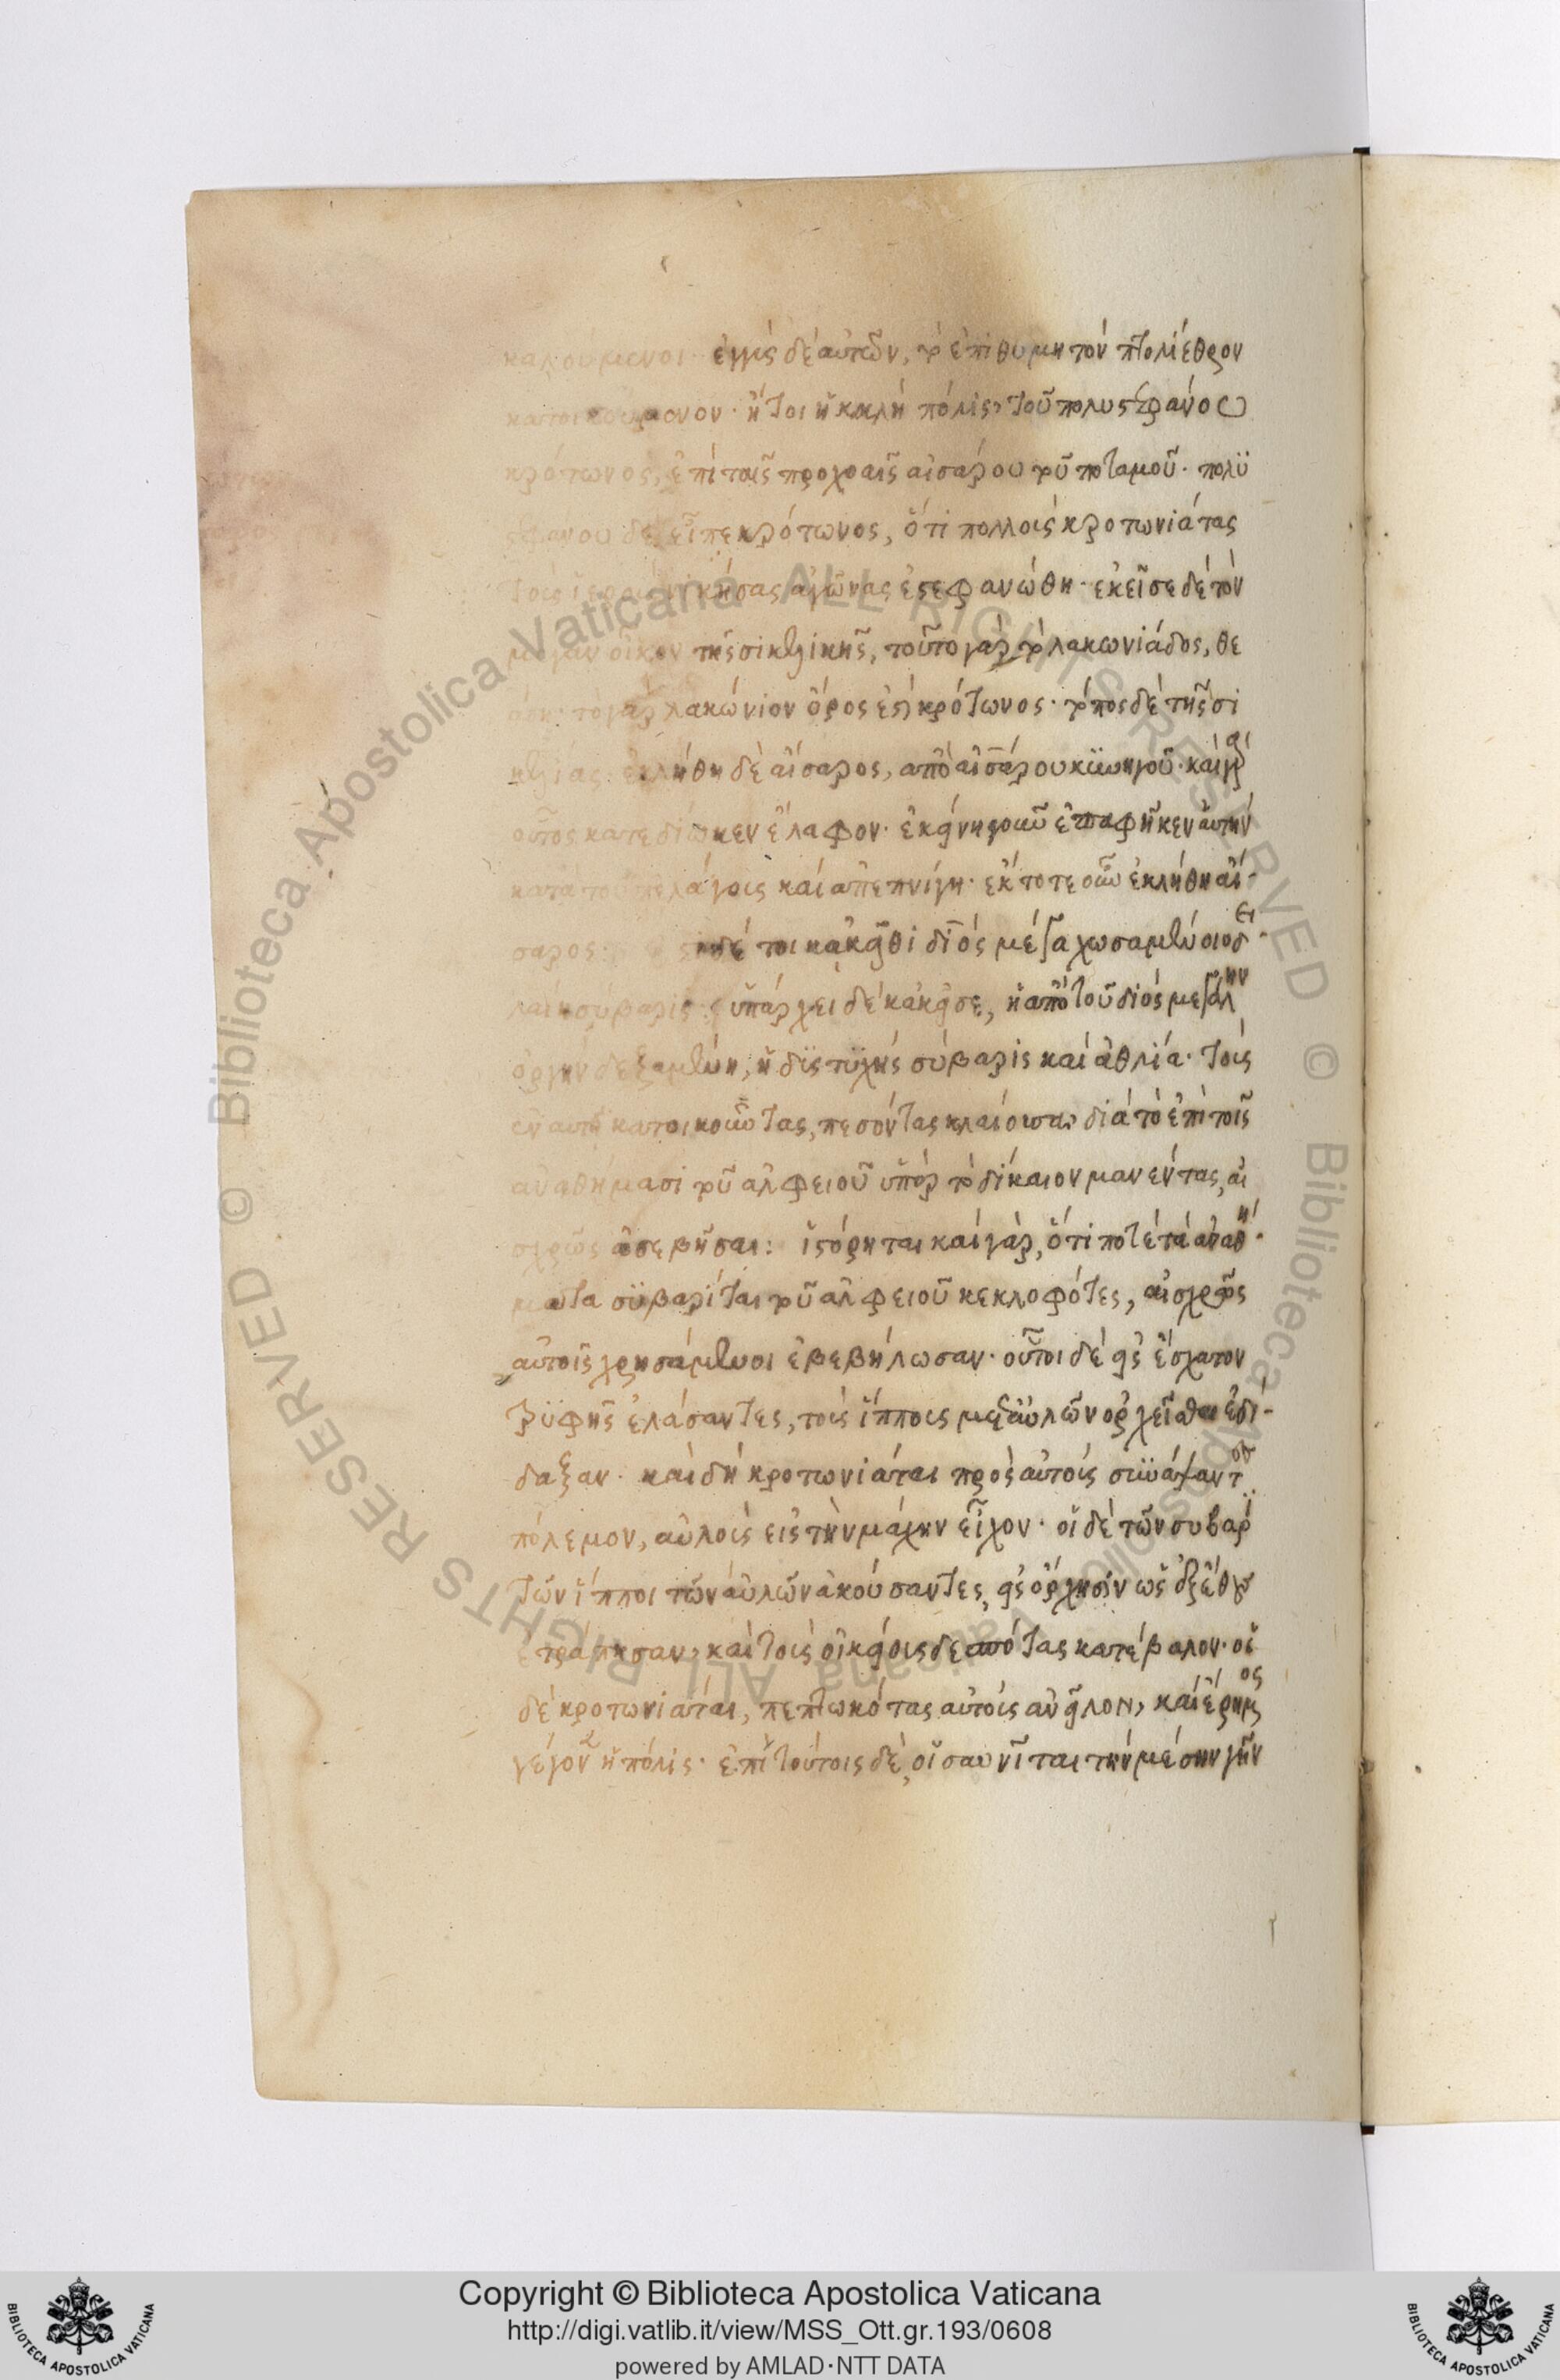 καλούμενοι· ἐγγὺς δὲ αὐτῶν, τὸ ἐπιθυμητὸν πτολίεθρον
κατοικούμενον· ἤτοι ἡ καλὴ πόλις, τοῦ πολυστεφάνου
κρότωνος, ἐπὶ ταῖς προχοαῖς αἰσάρου τοῦ ποταμοῦ. πολυ
στεφάνου δὲ εἶπε κρότωνος, ὅτι πολλοὺς κροτωνιάτας
τοὺς ἱεροὺς νικήσας ἀγῶνας ἐστεφανώθη· ἐκεῖσε δὲ τὸν
μέγαν οἶκον τῆς σικελικῆς, τοῦτο γὰρ τὸ λακωνιάδος, θε
άση· τὸ γὰρ λακώνιον ὄρος ἐστὶ κρότωνος· πρὸς δὲ τῆς σι
κελίας. ἐκλήθη δὲ αἴσαρος, ἀπὸ αἰσάρου κυνηγοῦ· καὶ γὰρ
οὗτος κατεδίωκεν ἔλαφον· ἐκείνης οὖν ἐπαφῆκεν αὐτὴν
κατὰ τοῦ πελάγους καὶ ἀπεπνίγη· ἔκτοτε οὖν ἐκλήθη αἴ-
σαρος: δέ τοι κἀκεῖθι διὸς μέγα χωσαμένοιο δει-
λαίη σύβαρις: ὑπάρχει δὲ κἀκεῖσε, ἡ ἀπὸ τοῦ διὸς μεγάλην
ὀργὴν δεξαμένη, ἡ δυστυχὴς σύβαρις καὶ ἀθλία· τοὺς
ἐν αὐτῇ κατοικοῦντας, πεσόντας κλαίουσα, διὰ τὸ ἐπὶ τοῖς
ἀναθήμασι τοῦ ἀλφειοῦ ὑπὲρ τὸ δίκαιον μανέντας, αἰ
σχρῶς ἀσεβῆσαι: ἱστόρηται καὶ γὰρ, ὅτι ποτὲ τὰ ἀναθή-
ματα συβαρίται τοῦ ἀλφειοῦ κεκλοφότες, αἰσχρῶς
αὐτοῖς χρησάμενοι ἐβεβήλωσαν· οὗτοι δὲ εἰς ἔσχατον
τρυφῆς ἐλάσαντες, τοὺς ἵππους μετ' αὐλῶν ὀρχεῖσθαι ἐδί-
δαξαν· καὶ δὴ κροτωνιάται πρὸς αὐτοὺς συνάψαντες
πόλεμον, αὐλοὺς εἰς τὴν μάχην εἶχον· οἱ δὲ τῶν συβαρι
τῶν ἵπποι τῶν αὐλῶν ἀκούσαντες, εἰς ὄρχησιν ὡς ἐξ ἔθους
ἐτράπησαν, καὶ τοὺς οἰκείους δεσπότας κατέβαλον· οἱ
δὲ κροτωνιάται, πεπτωκότας αὐτοὺς ἀνεῖλον, καὶ ἔρημος
γέγονεν ἡ πόλις· ἐπὶ τούτοις δὲ, οἱ σαυνῖται τὴν μέσην γῆν
Copyright © Biblioteca Apostolica Vaticana
http://digi.vatlib.it/view/MSS_Ott.gr.193/0608
powered by AMLAD·NTT DATA